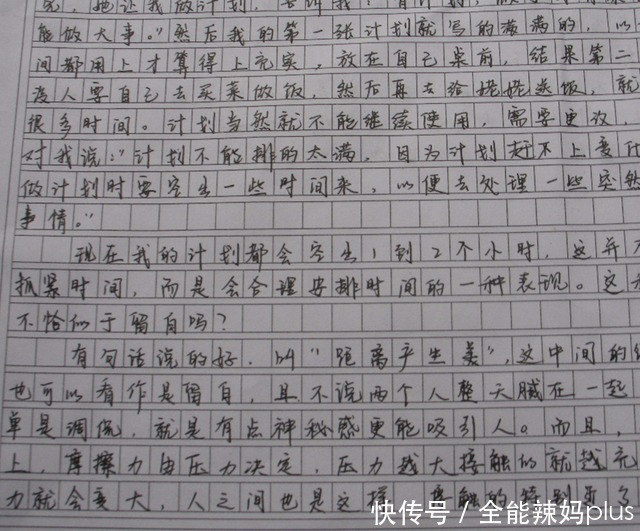 完，她让我做计划，
能做大事。"然后我的第一张计划就写的满满的，以
间都用上才算得上充实，放在自己桌前，结果第二
没人要自己去买菜做饭，然后再去给姥姥送饭，就
很多时间。计划当然就不能继续使用，需要更改，
对我说："计划不能排的太满，因为计划赶不上变化
做计划时要空出一些时间来，以便去处理一些突然
事情。"
现在我的计划都会空出1到2个小时，这并不
抓紧时间，而是会合理安排时间的一种表现。这
不恰似于留白吗？
有句话说的好，叫"距离产生美"，这中间的
也可以看作是留白，且不说两个人整天腻在一起
单是调侃，就是有点神秘感更能吸引人。而且，
上，摩擦力由压力决定，压力越大接触的就越充
力就会变大，人之间也是这样，接触的特别多了
快传号 / 全能辣妈plus